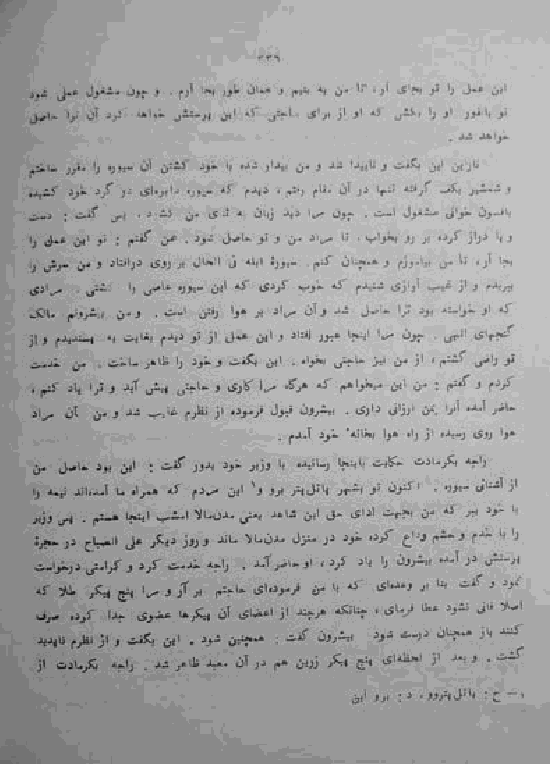 ۳۳۹
این عمل را تو بجای آر، تا من به بینم و همان طور بجا آرم. و چون مشغول عملی شود
تو بافور او را بخشی که او از برای حاجتی که این پرستش خواهد کرد آن ترا حاصل
خواهد شد.
نازنین این بگفت و ناپیدا شد و من بیدار شده با خود کشتن آن سیوره را مقرر ساختم
و شمشیر بکف گرفته تنها در آن مقام رفتم، دیدم که سیوره دایره‌ای در گرد خود کشیده
بافسون خوانی مشغول است. چون مرا دید زبان به ثنای من کشاد، پس گفت: دست
و پا دراز کرده بر رو بخواب، تا مراد من و تو حاصل شود. من گفتم: تو این عمل را
بجا آر، تا من بیاموزم و همچنان کنم. سیورهٔ ابله فی الحال بر روی درافتاد و من سرش را
ببریدم و از غیب آوازی شنیدم که خوب کردی که این سیوره عاصی را کشتی. مرادی
که او خواسته بود ترا حاصل شد و آن مراد بر هوا رفتن است. و من بیشرونم مالک
گنجهای الهی. چون مرا اینجا عبور افتاد و این عمل از تو دیدم بغایت به پسندیدم و از
تو راضی گشتم، از من نیز حاجتی بخواه. این بگفت و خود را ظاهر ساخت. من خدمت
کردم و گفتم: من این میخواهم که هرگاه مرا کاری و حاجتی پیش آید و ترا یاد کنم،
حاضر آمده آنرا بمن ارزانی داری. بیشرون قبول فرموده از نظرم غایب شد و من آن مراد
هوا روی رسیده از راه هوا بخانهٔ خود آمدم.
راجه بکرمادت حکایت باینجا رسانیده با وزیر خود بدور گفت: این بود حاصل من
از آشنائی سیوره. اکنون تو بشهر پاتلی‌پتر برو و۱ این مردم که همراه ما آمده‌اند نیمه را
با خود ببر که من بجهت ادای حق این شاهد یعنی مدن‌مالا امشب اینجا هستم. پس وزیر
را با خدم و حشم وداع کرده خود در منزل مدن‌مالا ماند و روز دیگر علی الصباح در حجرهٔ
پرستش در آمده بیشرون را یاد کرد، او حاضر آمد. راجه خدمت کرد و کرامتی درخواست
نمود و گفت بنا بر وعده‌ای که با من فرموده‌ای حاجتم بر آر و مرا پنج پیکر طلا که
اصلا فانی نشود عطا فرمای، چنانکه هرچند از اعضای آن پیکرها عضوی جدا کرده صرف
کنند باز همچنان درست شود. بیشرون گفت: همچنین شود. این بگفت و از نظرم ناپدید
گشت. و بعد از لحظه‌ای پنج پیکر زرین هم در آن معبد ظاهر شد. راجه بکرمادت از
۱ــ ح: پاتلی‌پترو، د: برو این